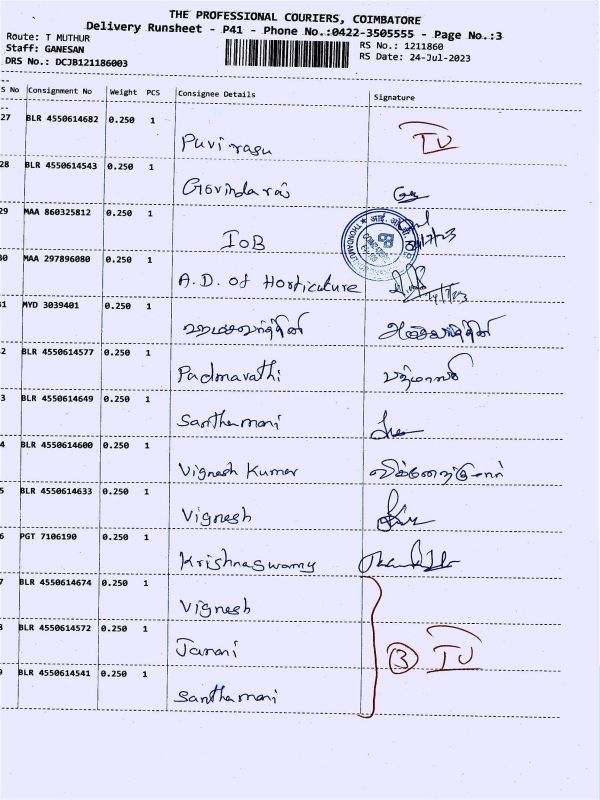 THE PROFESSIONAL COURIERS, COIMBATORE
Delivery Runsheet - P41 - Phone No.:0422-3505555 - Page No.:3
Route: T MUTHUR
RS No.: 1211860
Staff: GANESAN
RS Date: 24-Jul-2023
DRS No.: DCJB121186003
S No Consignment No Weight PCS Consignee Details Signature
27 BLR 4550614682 0.250 1
Puvirasu TU
28 BLR 4550614543 0.250 1
Govindaraj
29 MAA 860325812 0.250 1
IOB
30 MAA 297896080 0.250 1
A.D. of Horticuture
31 MYD 3039401 0.250 1
2 BLR 4550614577 0.250 1
Padmavathi பத்மாவதி
3 BLR 4550614649 0.250 1
Santhamani
4 BLR 4550614600 0.250 1
Vignesh Kumar விக்னேஷ்குமார்
5 BLR 4550614633 0.250 1
Vignesh
6 PGT 7106190 0.250 1
Krishnaswamy
7 BLR 4550614674 0.250 1
Vignesh
8 BLR 4550614572 0.250 1
Janani 3 TU
9 BLR 4550614541 0.250 1
Santhamani